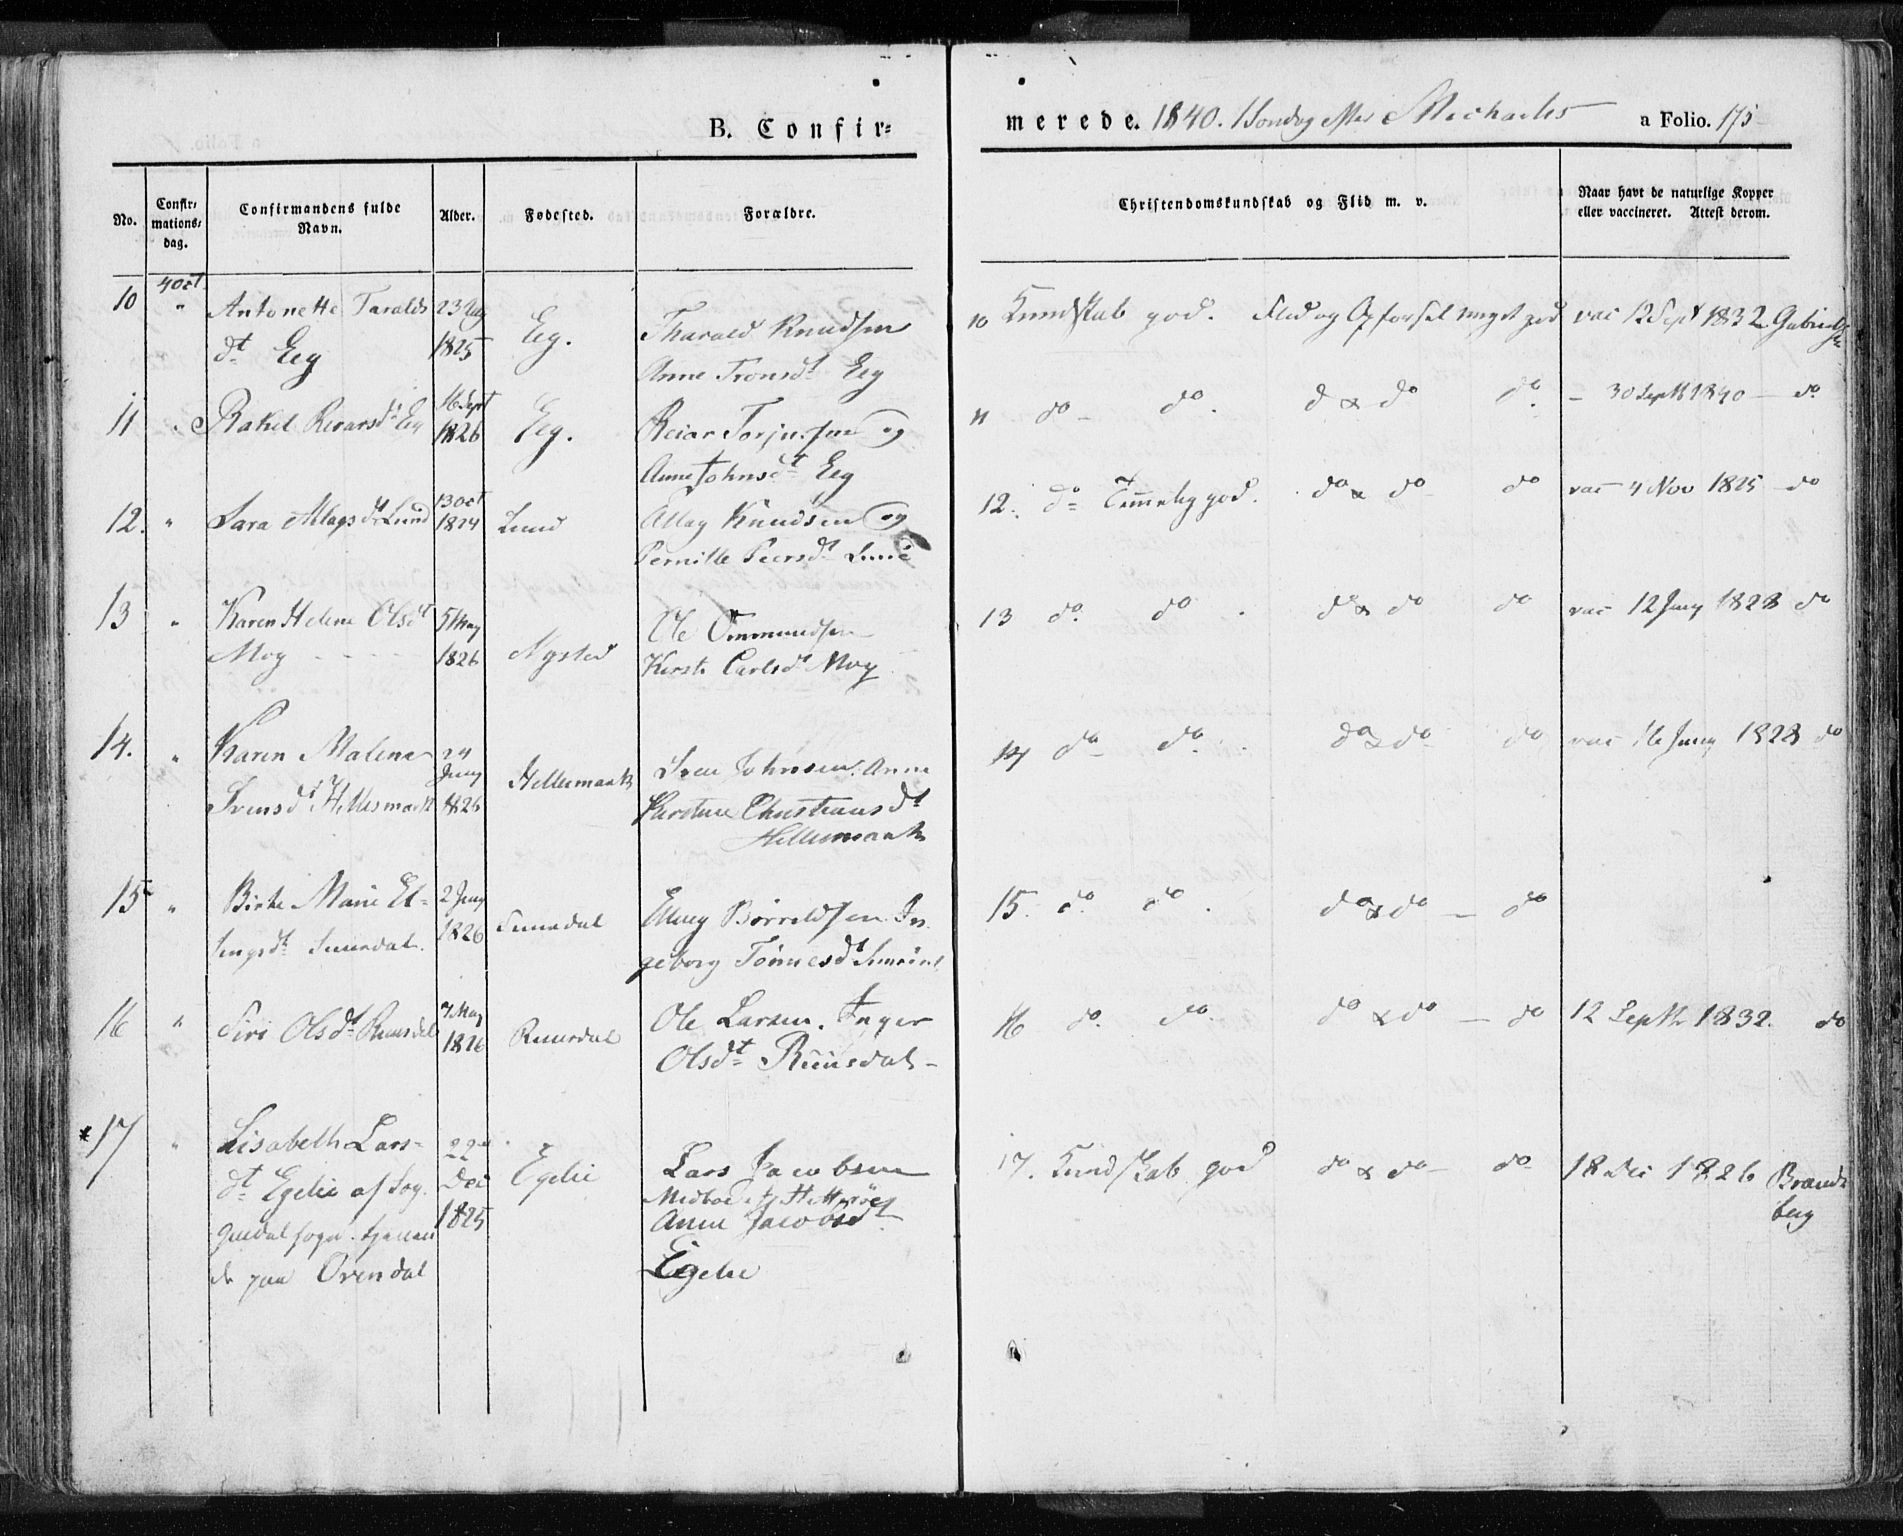 B. Confir=
merede. 1840. Søndag efter Michaelis a Folio. 175
No.
Confir=
mations=
dag.
Confirmandens fulde
Navn.
Alder.
Fødested.
Forældre.
Christendomskundskab og Flid m. v.
Naar havt de naturlige Kopper
eller vaccineret. Attest derom.
4 Oct
10 " Antonette Taralds 23 Aug
dt Eeg 1825 Eeg. Tharald Knudsen
Anne Tronsdt Eeg
10 Kundskab god. Flid og Opførsel meget god vac 12 Sept 1832 Gabriels
11 " Rakel Reiarsdt Eeg 16 Sept
1826 Eeg. Reiar Torjusen og
Anne Johnsdt Eeg
11 do do. do & do do. – 30 Sept 1840 – do
12. " Sara Atlagsdt Lund 13 Oct
1824 Lund Atlag Knudsen og
Pernille Peersdt Lund
12. do Temmelig god. do & do do vac 4 Nov 1825 – do
13 " Karen Helene Olsdt 5 May
Moy - - - - 1826 Nysted Ole Ommundsen
Kirsti Carlsdt Moy
13 do. do . do & do do vac 12 Juny 1828 do
14. " Karen Malena 24
Juny
Svensdt Hellesmark 1826 Hellesmark Sven Johnsen. Anne
Karstine Christiansdt
Hellesmark
14 do do. do & do do vac 16 Juny 1828 do
15 " Birte Marie El= 2 Juny
lingsdt 1826 Elling Børreldsen In
geborg Tønnesdt
15. do. do . do & do – do
16 " Siri Olsdt Ruusdal 7 May
1826 Ruusdal Ole Larsen. Inger
Olsdt Ruusdal –
16 do. do. do & do – do 12 Septbr 1832. do
* 17 " Lisabeth Lars= 22
dt Egelie af Sog. Dec
1825 Egelie Lars Jacobsen
Anne Jacobsdt
Egelie
gendal sogn. tjenen
de paa Orendal
17. Kundskab god do & do – do 18 Dec 1826 Brands
berg